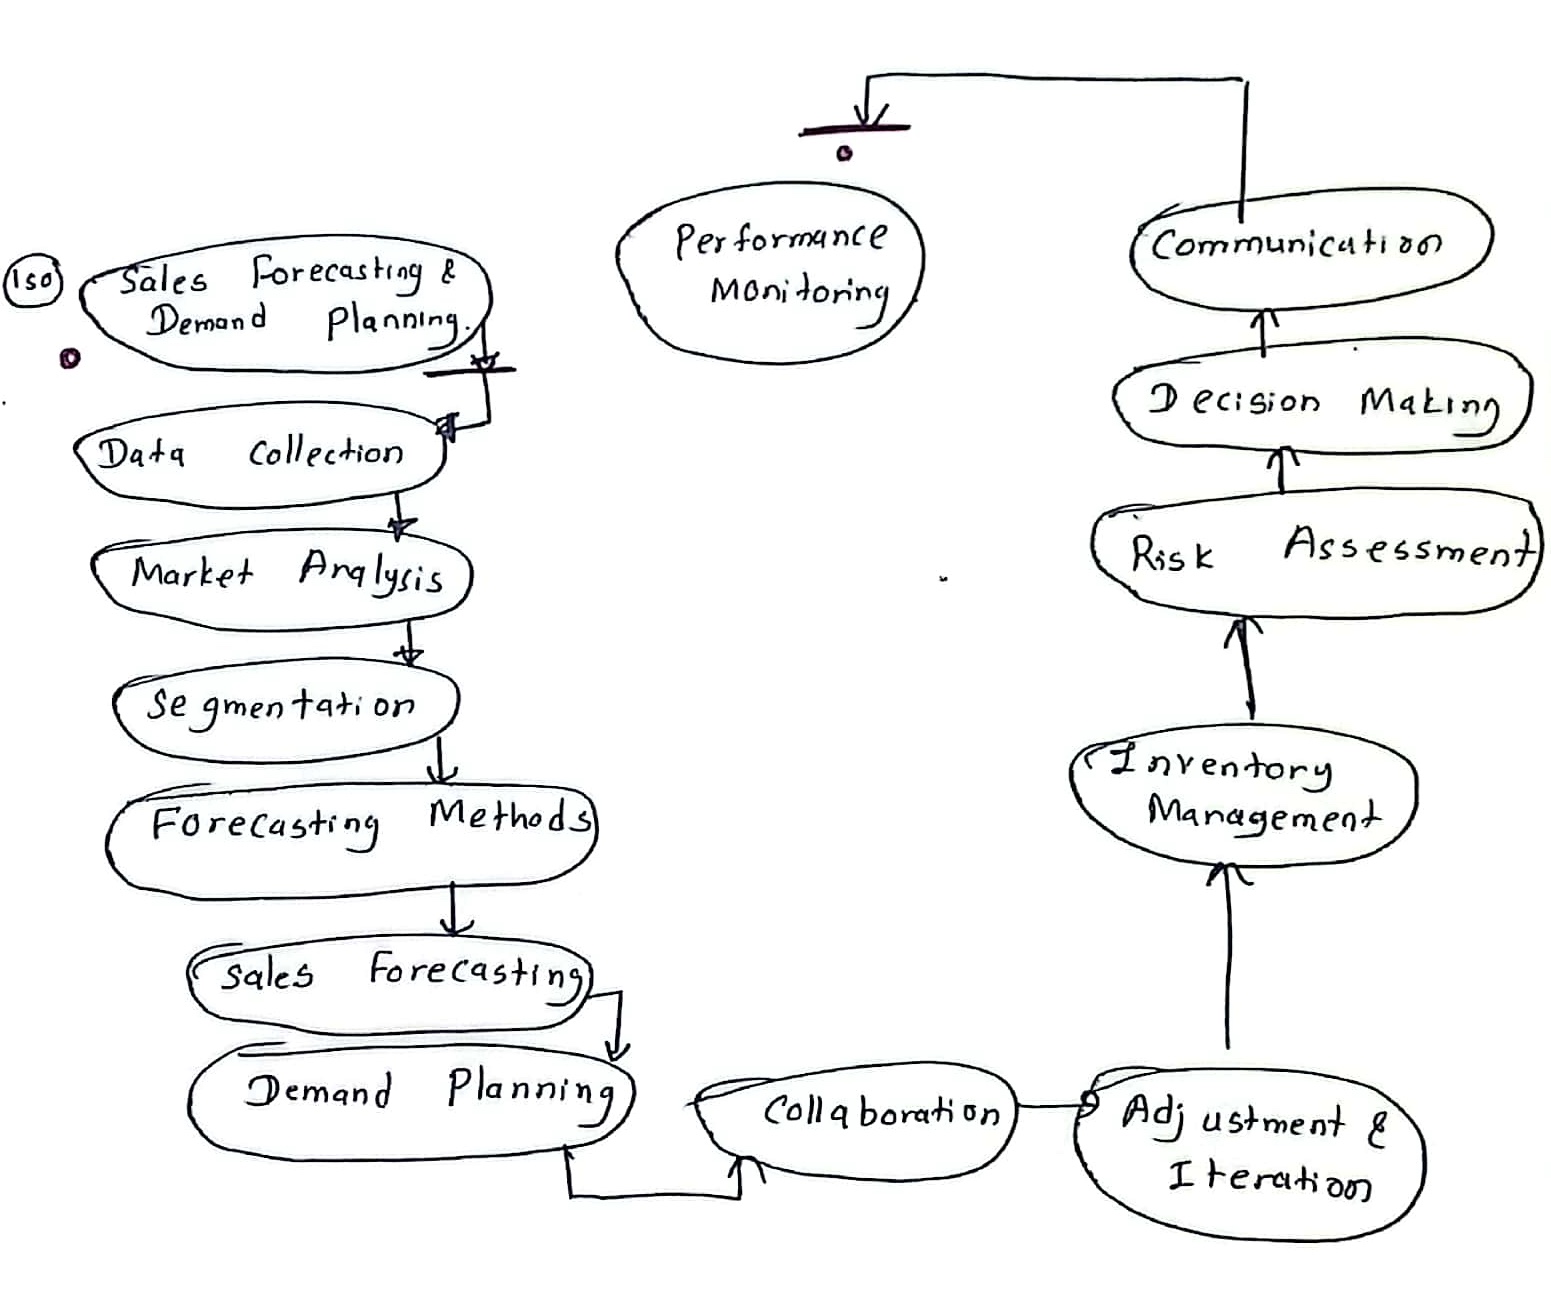 150
Sales Forecasting &
Demand Planning.
Data Collection
Market Analysis
Segmentation
Forecasting Methods
Sales Forecasting
Demand Planning
Collaboration
Adjustment &
Iteration
Inventory
Management
Risk Assessment
Decision Making
Communication
Performance
Monitoring